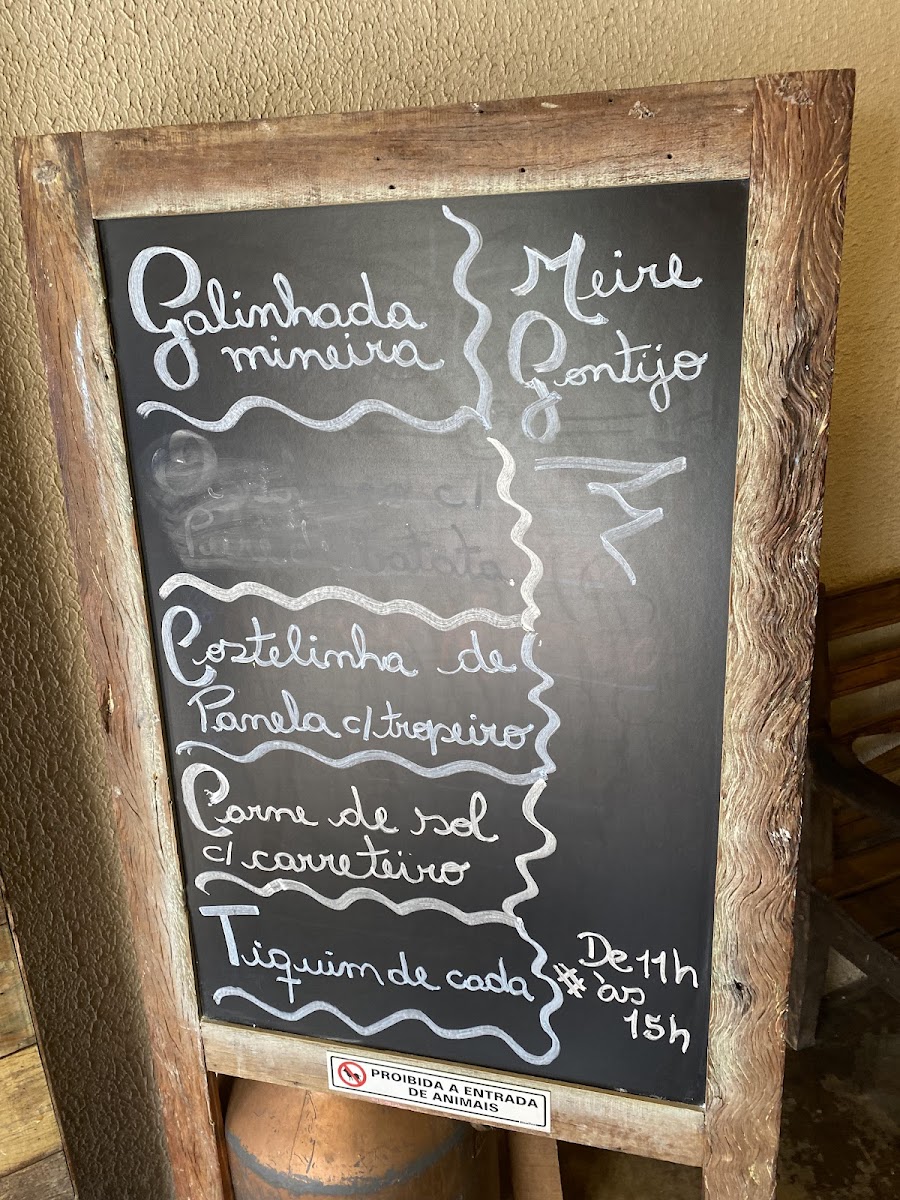 Galinhada
mineira
Meire
Gontijo
Costelinha de
Panela c/ tropeiro
Carne de sol
c/ carreteiro
Tiquim de cada
# De 11h
às
15h
PROIBIDA A ENTRADA
DE ANIMAIS